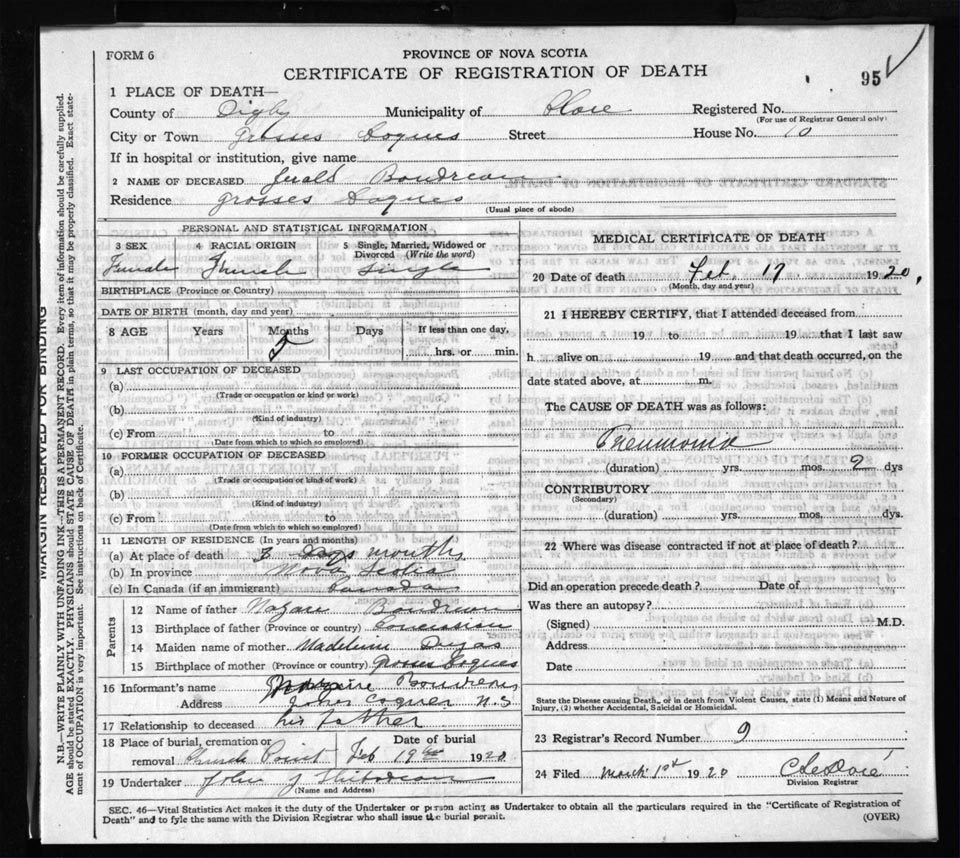 FORM 6
PROVINCE OF NOVA SCOTIA
CERTIFICATE OF REGISTRATION OF DEATH
95
1 PLACE OF DEATH—
County of Digby Municipality of Clare Registered No.
(For use of Registrar General only)
City or Town Grosses Coques Street House No. 10
If in hospital or institution, give name
2 NAME OF DECEASED Boudreau
Residence grosses Coques
(Usual place of abode)
PERSONAL AND STATISTICAL INFORMATION
3 SEX 4 RACIAL ORIGIN 5 Single, Married, Widowed or Divorced (Write the word)
Female French Single
BIRTHPLACE (Province or Country)
DATE OF BIRTH (month, day end year)
8 AGE Years Months Days If less than one day,
hrs. or min.
9 LAST OCCUPATION OF DECEASED
(a)
(Trade or occupation or kind or work)
(b)
(Kind of industry)
(c) From to
(Date from which to which so employed)
10 FORMER OCCUPATION OF DECEASED
(a)
(Trade or occupation or kind of work)
(b)
(Kind of industry)
(c) From to
(Date from which to which so employed)
11 LENGTH OF RESIDENCE (In years and months)
(a) At place of death months
(b) In province Nova Scotia
(c) In Canada (if an immigrant) Canada
Parents
12 Name of father Boudreau
13 Birthplace of father (Province or country) Concession
14 Maiden name of mother Madeleine Dugas
15 Birthplace of mother (Province or country) Grosses Coques
16 Informant's name Boudreau
Address Coques N.S
17 Relationship to deceased his father
18 Place of burial, cremation or removal Church Point Date of burial Feb 19 1920
19 Undertaker John J Thibodeau
(Name and Address)
MEDICAL CERTIFICATE OF DEATH
20 Date of death Feb. 17 1920,
(Month, day and year)
21 I HEREBY CERTIFY, that I attended deceased from
19 to 19 that I last saw
h alive on 19 and that death occurred, on the
date stated above, at m.
The CAUSE OF DEATH was as follows:
Pneumonia
(duration) yrs. mos. 2 dys
CONTRIBUTORY
(Secondary)
(duration) yrs. mos. dys.
22 Where was disease contracted if not at place of death?
Did an operation precede death? Date of
Was there an autopsy?
(Signed) M.D.
Address
Date
State the Disease causing Death, or in death from Violent Causes, state (1) Means and Nature of
Injury, (2) whether Accidental, Suicidal or Homicidal.
23 Registrar's Record Number 9
24 Filed March 1st 1920
Division Registrar
SEC. 46—Vital Statistics Act makes it the duty of the Undertaker or person acting as Undertaker to obtain all the particulars required in the "Certificate of Registration of
Death" and to fyle the same with the Division Registrar who shall issue the burial permit.
(OVER)
MARGIN RESERVED FOR BINDING
N.B.—WRITE PLAINLY WITH UNFADING INK—THIS IS A PERMANENT RECORD. Every item of information should be carefully supplied.
AGE should be stated EXACTLY. PHYSICIANS should STATE CAUSE OF DEATH in plain terms, so that it may be properly classified. Exact statement of OCCUPATION is very important. See instructions on back of Certificate.